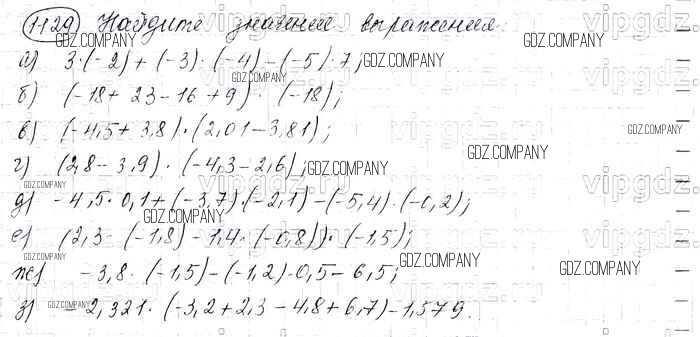 1129 Найдите значение выражения:
а) 3·(-2)+(-3)·(-4)-(-5)·7;
б) (-18+23-16+9)·(-18);
в) (-4,5+3,8)·(2,01-3,81);
г) (2,8-3,9)·(-4,3-2,6);
д) -4,5·0,1+(-3,7)·(-2,1)-(-5,4)·(-0,2);
е) (2,3·(-1,8)-1,4·(-0,8))·(-1,5);
ж) -3,8·(-1,5)-(-1,2)·0,5-6,5;
з) -2,321·(-3,2+2,3-4,8+6,7)-1,579.
GDZ.COMPANY
GDZ.COMPANY
GDZ.COMPANY
GDZ.COMPANY
GDZ.COMPANY
GDZ.COMPANY
GDZ.COMPANY
GDZ.COMPANY
GDZ.COMPANY
GDZ.COMPANY
GDZ.COMPANY
GDZ.COMPANY
GDZ.COMPANY
vipgdz.ru
vipgdz.ru
vipgdz.ru
vipgdz.ru